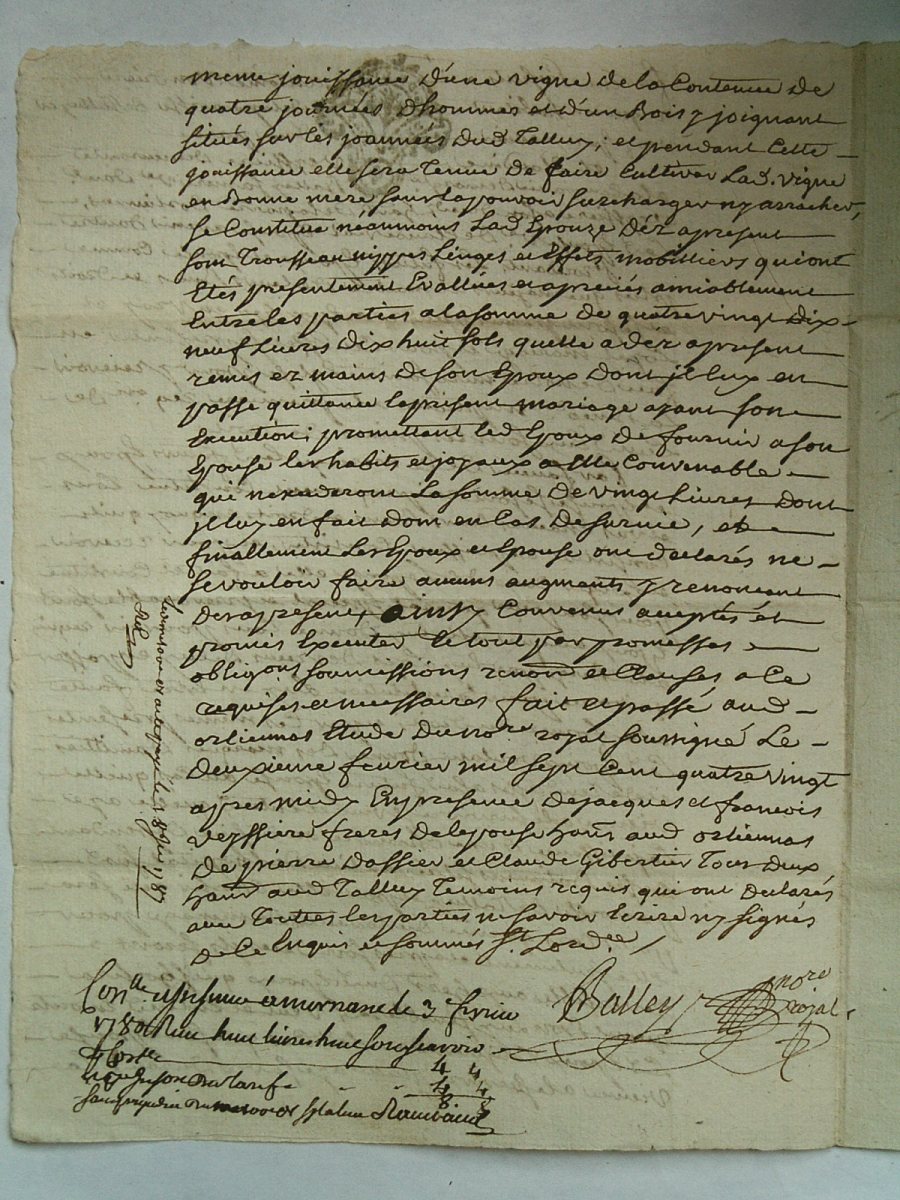 meme jouissance d'une vigne de la Contenue de
quatre journées d'hommes et d'un Bois y joignant
situés sur les joannées dud Talluy; et pendant Cette
jouissance elle sera Tenüe de faire Cultiver Lad. vigne
en Bonne mere sans la pouvoir surcharger ny arracher,
se Constitue néanmoins Lad Epouze déz apresent
son Trousseau nippes Linges et Effets mobilliers qui ont
Etés presentement Evallués et apreciés amiablement
Entre les parties a la somme de quatre vingt dix
neuf Livres dix huit sols quelle a déz apresent
remis ez mains de son Epoux dont jl luy en
passe quittance le present mariage ayant son
Execution; promettant led Epoux de fournir a son
Epouse les habits et joyaux a Elle Convenable
qui nexcederont La somme de vingt Livres dont
jl luy en fait dom en Cas de survie, et
finallement Les Epoux et Epouse ont declarés ne
se vouloir faire aucuns augments y renoncent
dez apresent, ainsy Convenus acceptés et
promis Executer Le tout par promesses
obligons soumissions renonõn et Clauses a Ce
requises et necessaires fait et passé aud
orliennas Etude du nore royal soussigné Le
deuxieme fevrier mil sept Cent quatre vingt
apres midy En presence de jacques et francois
veyssiere freres de lepouse hants aud orliennas
de pierre dassier et Claude Gibertier Tous deux
hants aud Talluy Temoins requis qui ont declarés
avec Touttes les parties ne savoir Ecrire ny signés
de Ce Enquis et sommés St. Lordce
Balley nore royal
Conlle et insinué à mornant le 3e fevrier
1780 Reçu huit livres huit sols scavoir
4 4
4 4
8 8